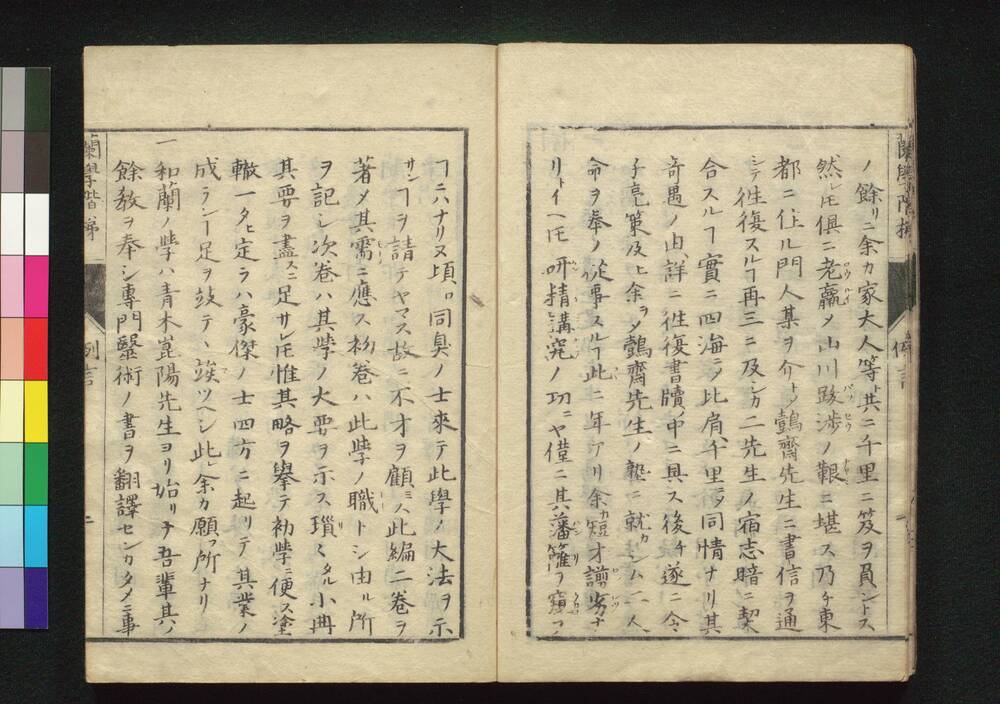 蘭學階梯
例言
ノ餘リニ余カ家大人等ト共ニ千里ニ笈ヲ負ントス
然レ𪜈俱ニ老羸メ山川跋渉ノ艱ニ堪ス乃チ東
都ニ住ル門人某ヲ介トメ鷧齋先生ニ書信ヲ通
シテ徃復スルヿ再三ニ及シカ二先生ノ宿志暗ニ契
合スルヿ實ニ四海ニメ比肩、千里ニメ同情ナリ其
奇遇ノ由、詳ニ徃復書牘中ニ具ス後チ遂ニ令
子亮策及ヒ余ヲメ鷧齋先生ノ塾ニ就カシム二人
命ヲ奉ノ從事スルヿ此ニ年アリ余カ短才謭劣ナ
リトイヘ𪜈研精講究ノ功ニヤ僅ニ其藩籬ヲ窺フノ
ヿニハナリヌ頃口同臭ノ士來テ此學ノ大法ヲ示
サンヿヲ請テヤマス故ニ不才ヲ顧ミス此編二卷ヲ
著メ其需ニ應ス初卷ハ此學ノ職トシ由ル所
ヲ記シ次卷ハ其學ノ大要ヲ示ス瑣〻タル小冊
其要ヲ盡スニ足サレ𪜈惟其略ヲ擧テ初學ニ便ス塗
轍一タヒ定ラハ豪傑ノ士四方ニ起リテ其業ノ
成ランヿ足ヲ跂テヽ竢ツヘシ此レ余カ願フ所ナリ
一和蘭ノ學ハ青木崑陽先生ヨリ始リテ吾輩其ノ
餘教ヲ奉シ專門毉術ノ書ヲ翻譯センカタメニ事
蘭學階梯
例言
二